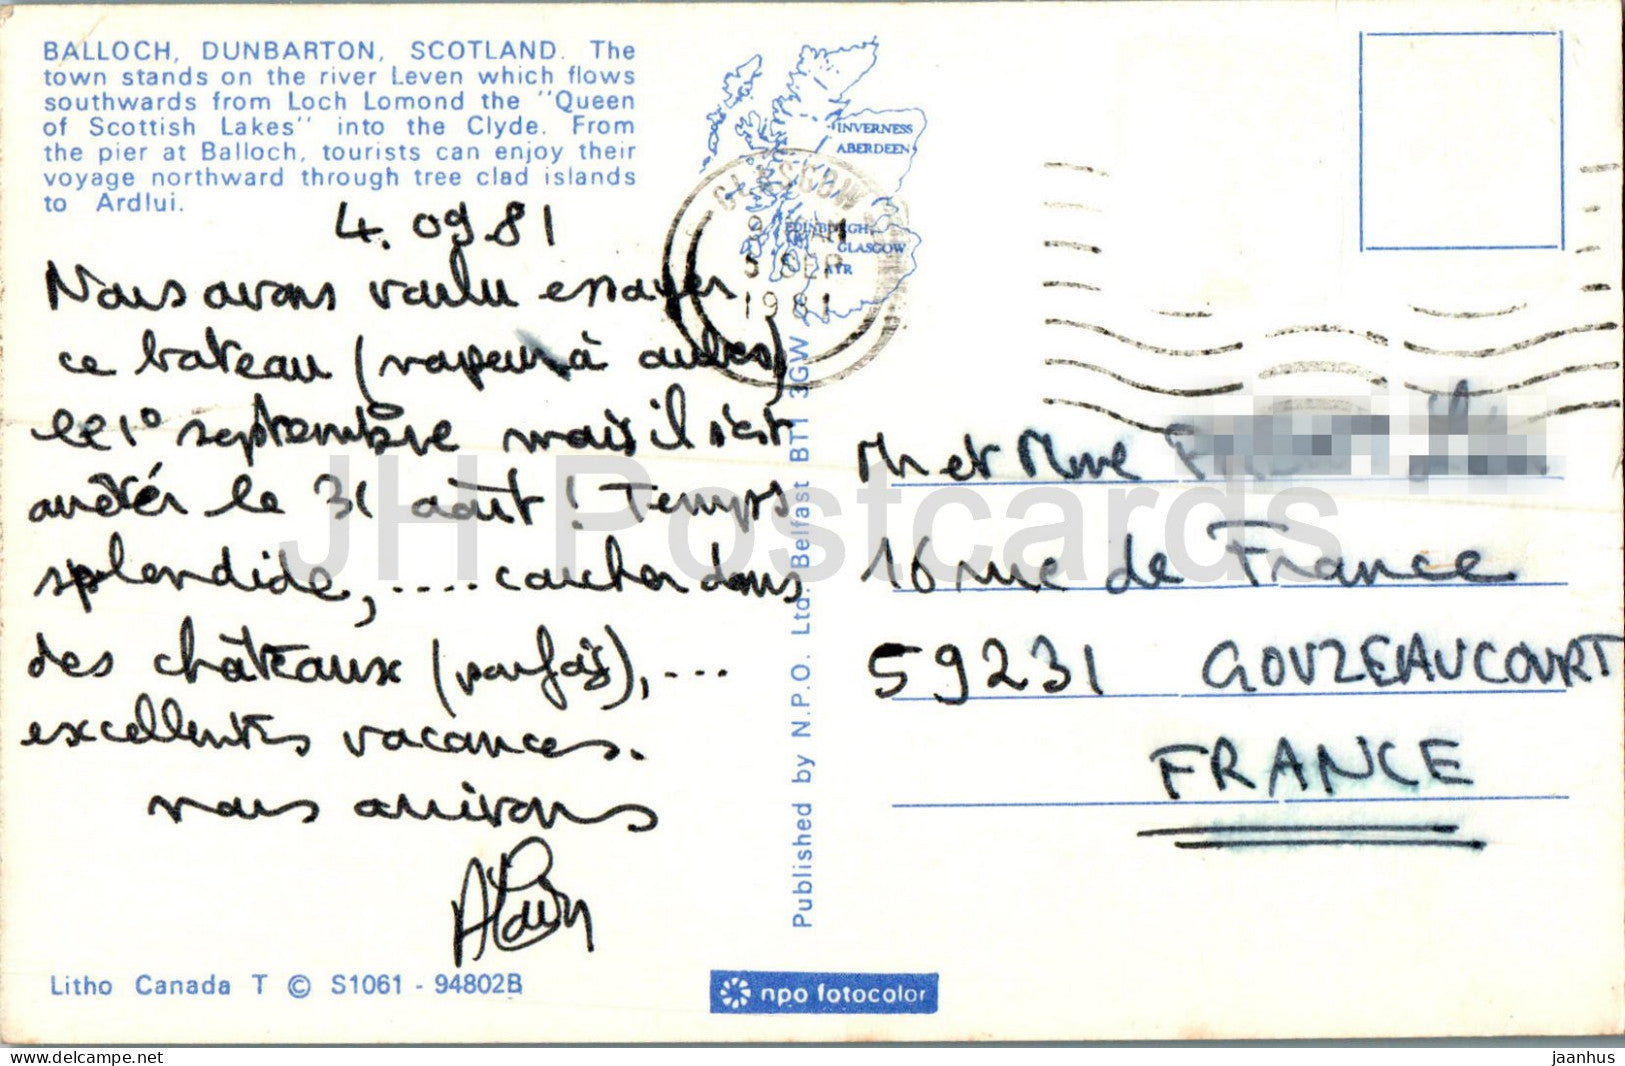 BALLOCH, DUNBARTON, SCOTLAND. The
town stands on the river Leven which flows
southwards from Loch Lomond the "Queen
of Scottish Lakes" into the Clyde. From
the pier at Balloch, tourists can enjoy their
voyage northward through tree clad islands
to Ardlui.
4.09.81
Nous avons voulu essayer
ce bateau (vapeur à aubes)
le 1° septembre mais il s'est
arrêtér le 31 août ! Temps
splendide, .... coucher dans
des châteaux (parfois), ...
excellentes vacances.
nous arrivons
Alain
Litho Canada T © S1061 - 94802B
INVERNESS
ABERDEEN
EDINBURGH
GLASGOW
AYR
GLASGOW
AM
5 SEP
1981
Published by N.P.O. Ltd. Belfast BT1 3GW
npo fotocolor
M et Mme
16 rue de France
59231 GOUZEAUCOURT
FRANCE
JH Postcards
delcampe.net
jaanhus